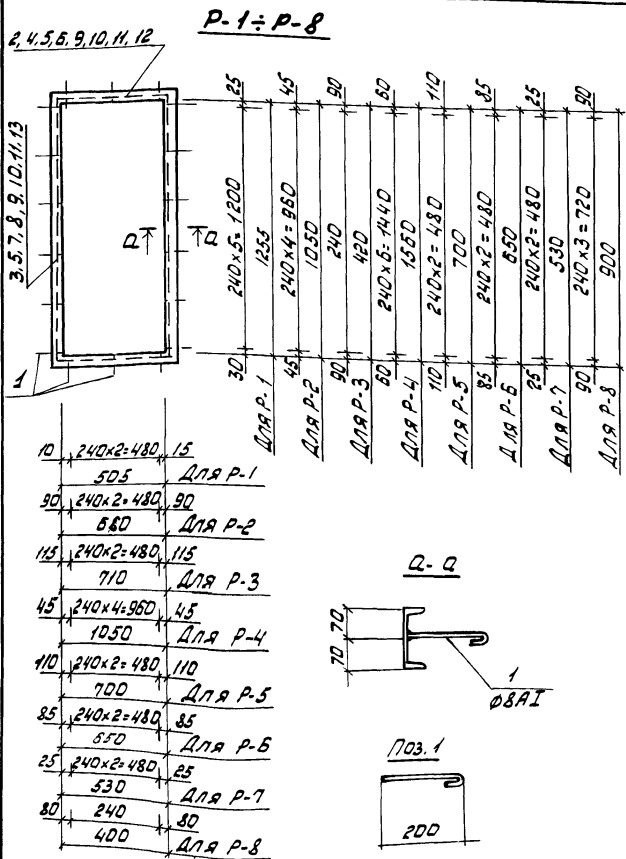 Р-1÷Р-8
2, 4, 5, 6, 9, 10, 11, 12
3, 5, 7, 8, 9, 10, 11, 13
1
а а
25
240х5=1200
30
1255
Для Р-1
45
240х4=960
45
1050
Для Р-2
90
240
90
420
Для Р-3
60
240х6=1440
60
1560
Для Р-4
110
240х2=480
110
700
Для Р-5
85
240х2=480
85
650
Для Р-6
25
240х2=480
25
530
Для Р-7
90
240х3=720
90
900
Для Р-8
10 240х2=480 15
505 Для Р-1
90 240х2=480 90
660 Для Р-2
115 240х2=480 115
710 Для Р-3
45 240х4=960 45
1050 Для Р-4
110 240х2=480 110
700 Для Р-5
85 240х2=480 85
650 Для Р-6
25 240х2=480 25
530 Для Р-7
80 240 80
400 Для Р-8
а-а
70
70
1
Ø8АI
Поз. 1
200